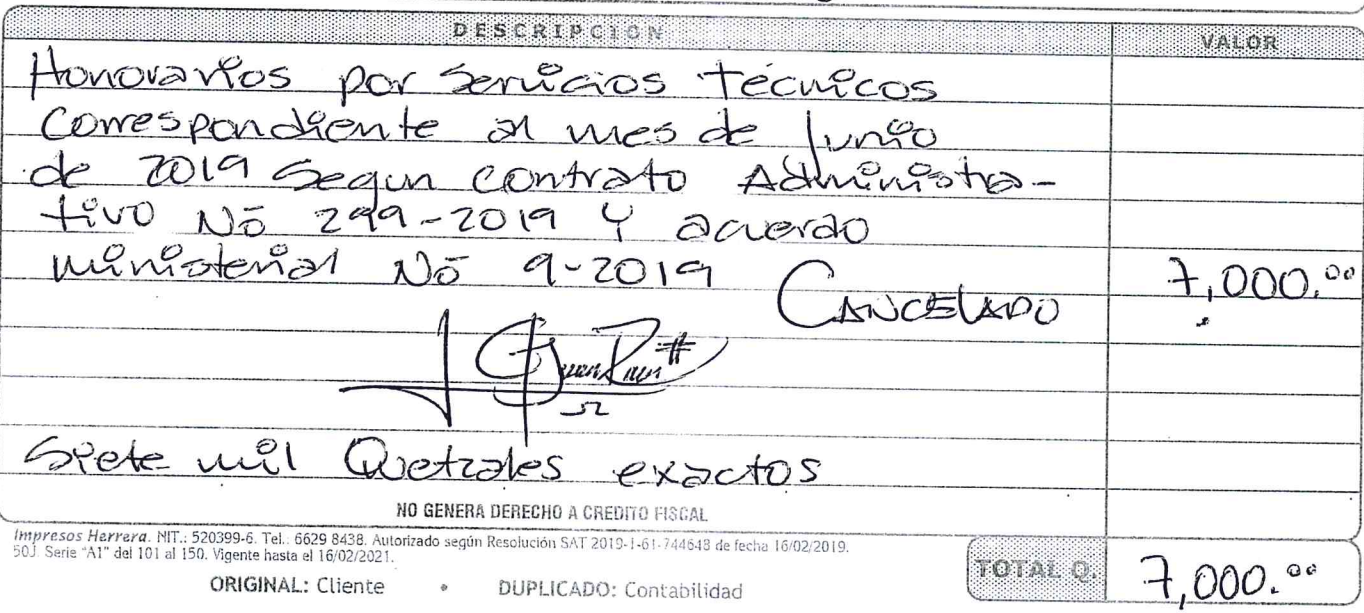 DESCRIPCION VALOR
Honorarios por Servicios técnicos
Correspondiente al mes de Junio
de 2019 Segun contrato Administra-
tivo No 299-2019 Y acuerdo
ministerial No 9-2019 7,000.00
CANCELADO
Siete mil Quetzales exactos
NO GENERA DERECHO A CREDITO FISCAL
Impresos Herrera. NIT.: 520399-6. Tel.: 6629 8438. Autorizado según Resolución SAT 2019-1-61-744648 de fecha 16/02/2019.
50J. Serie "A1" del 101 al 150. Vigente hasta el 16/02/2021.
TOTAL Q. 7,000.00
ORIGINAL: Cliente • DUPLICADO: Contabilidad